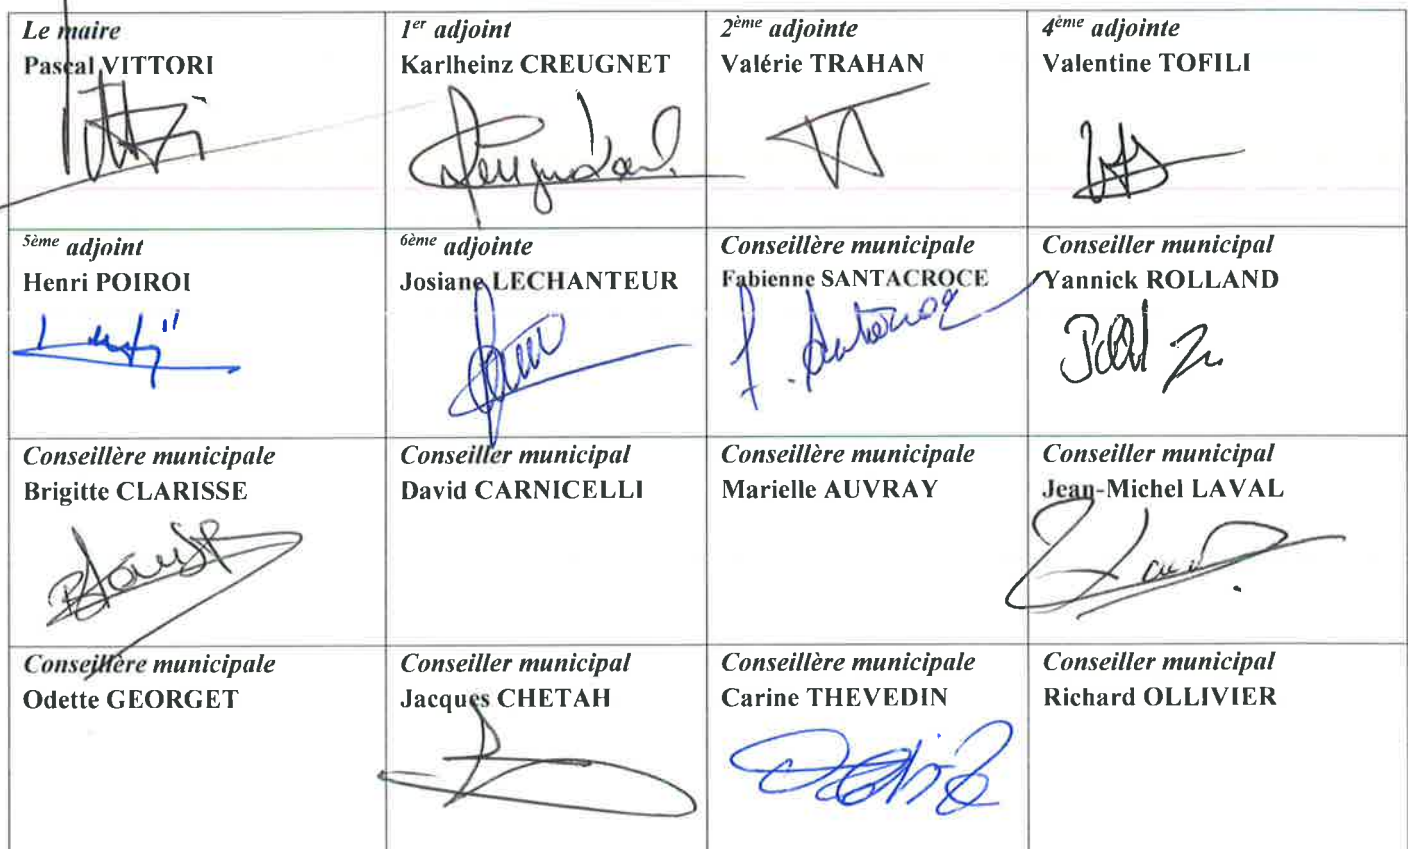 Le maire
Pascal VITTORI
1er adjoint
Karlheinz CREUGNET
2ème adjointe
Valérie TRAHAN
4ème adjointe
Valentine TOFILI
5ème adjoint
Henri POIROI
6ème adjointe
Josiane LECHANTEUR
Conseillère municipale
Fabienne SANTACROCE
Conseiller municipal
Yannick ROLLAND
Conseillère municipale
Brigitte CLARISSE
Conseiller municipal
David CARNICELLI
Conseillère municipale
Marielle AUVRAY
Conseiller municipal
Jean-Michel LAVAL
Conseillère municipale
Odette GEORGET
Conseiller municipal
Jacques CHETAH
Conseillère municipale
Carine THEVEDIN
Conseiller municipal
Richard OLLIVIER